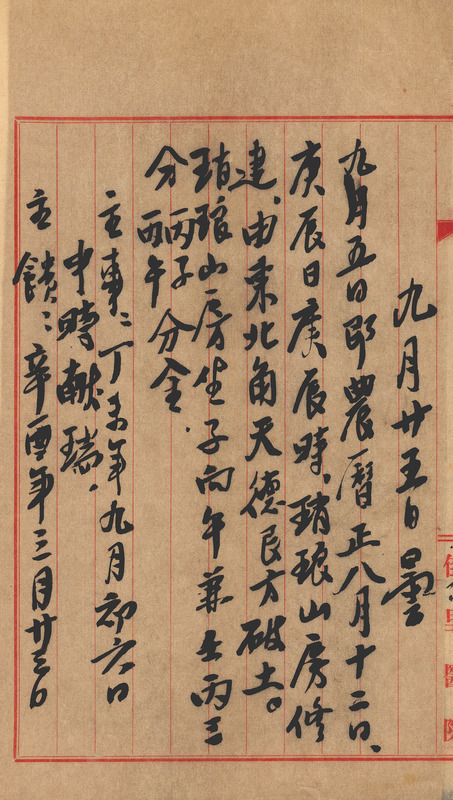 九月廿五日 曇
九月五日即農曆正八月十二日、
庚辰日庚辰時、琑琅山房修
建、由東北角天德艮方破土。
琑琅山房坐子向午兼壬丙三
分 丙子 丙午 分金.
主東：丁未年九月初六日
申時献瑞.
主饋：辛酉年三月廿三日
佳里醫院